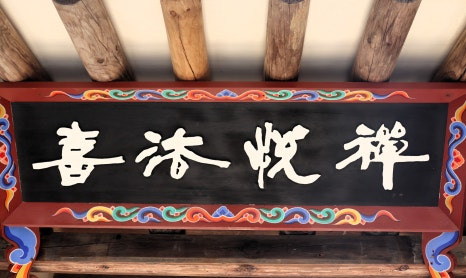 禪悅法喜